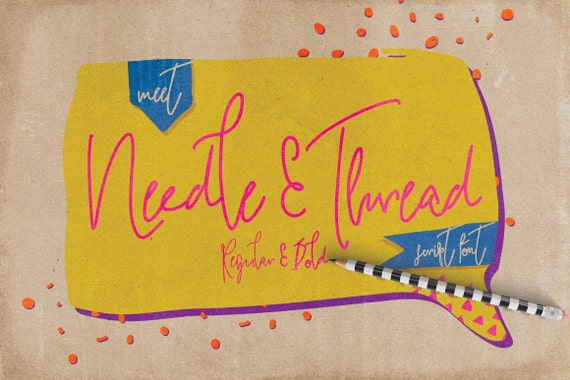 meet
Needle & Thread
Regular & Bold
script font